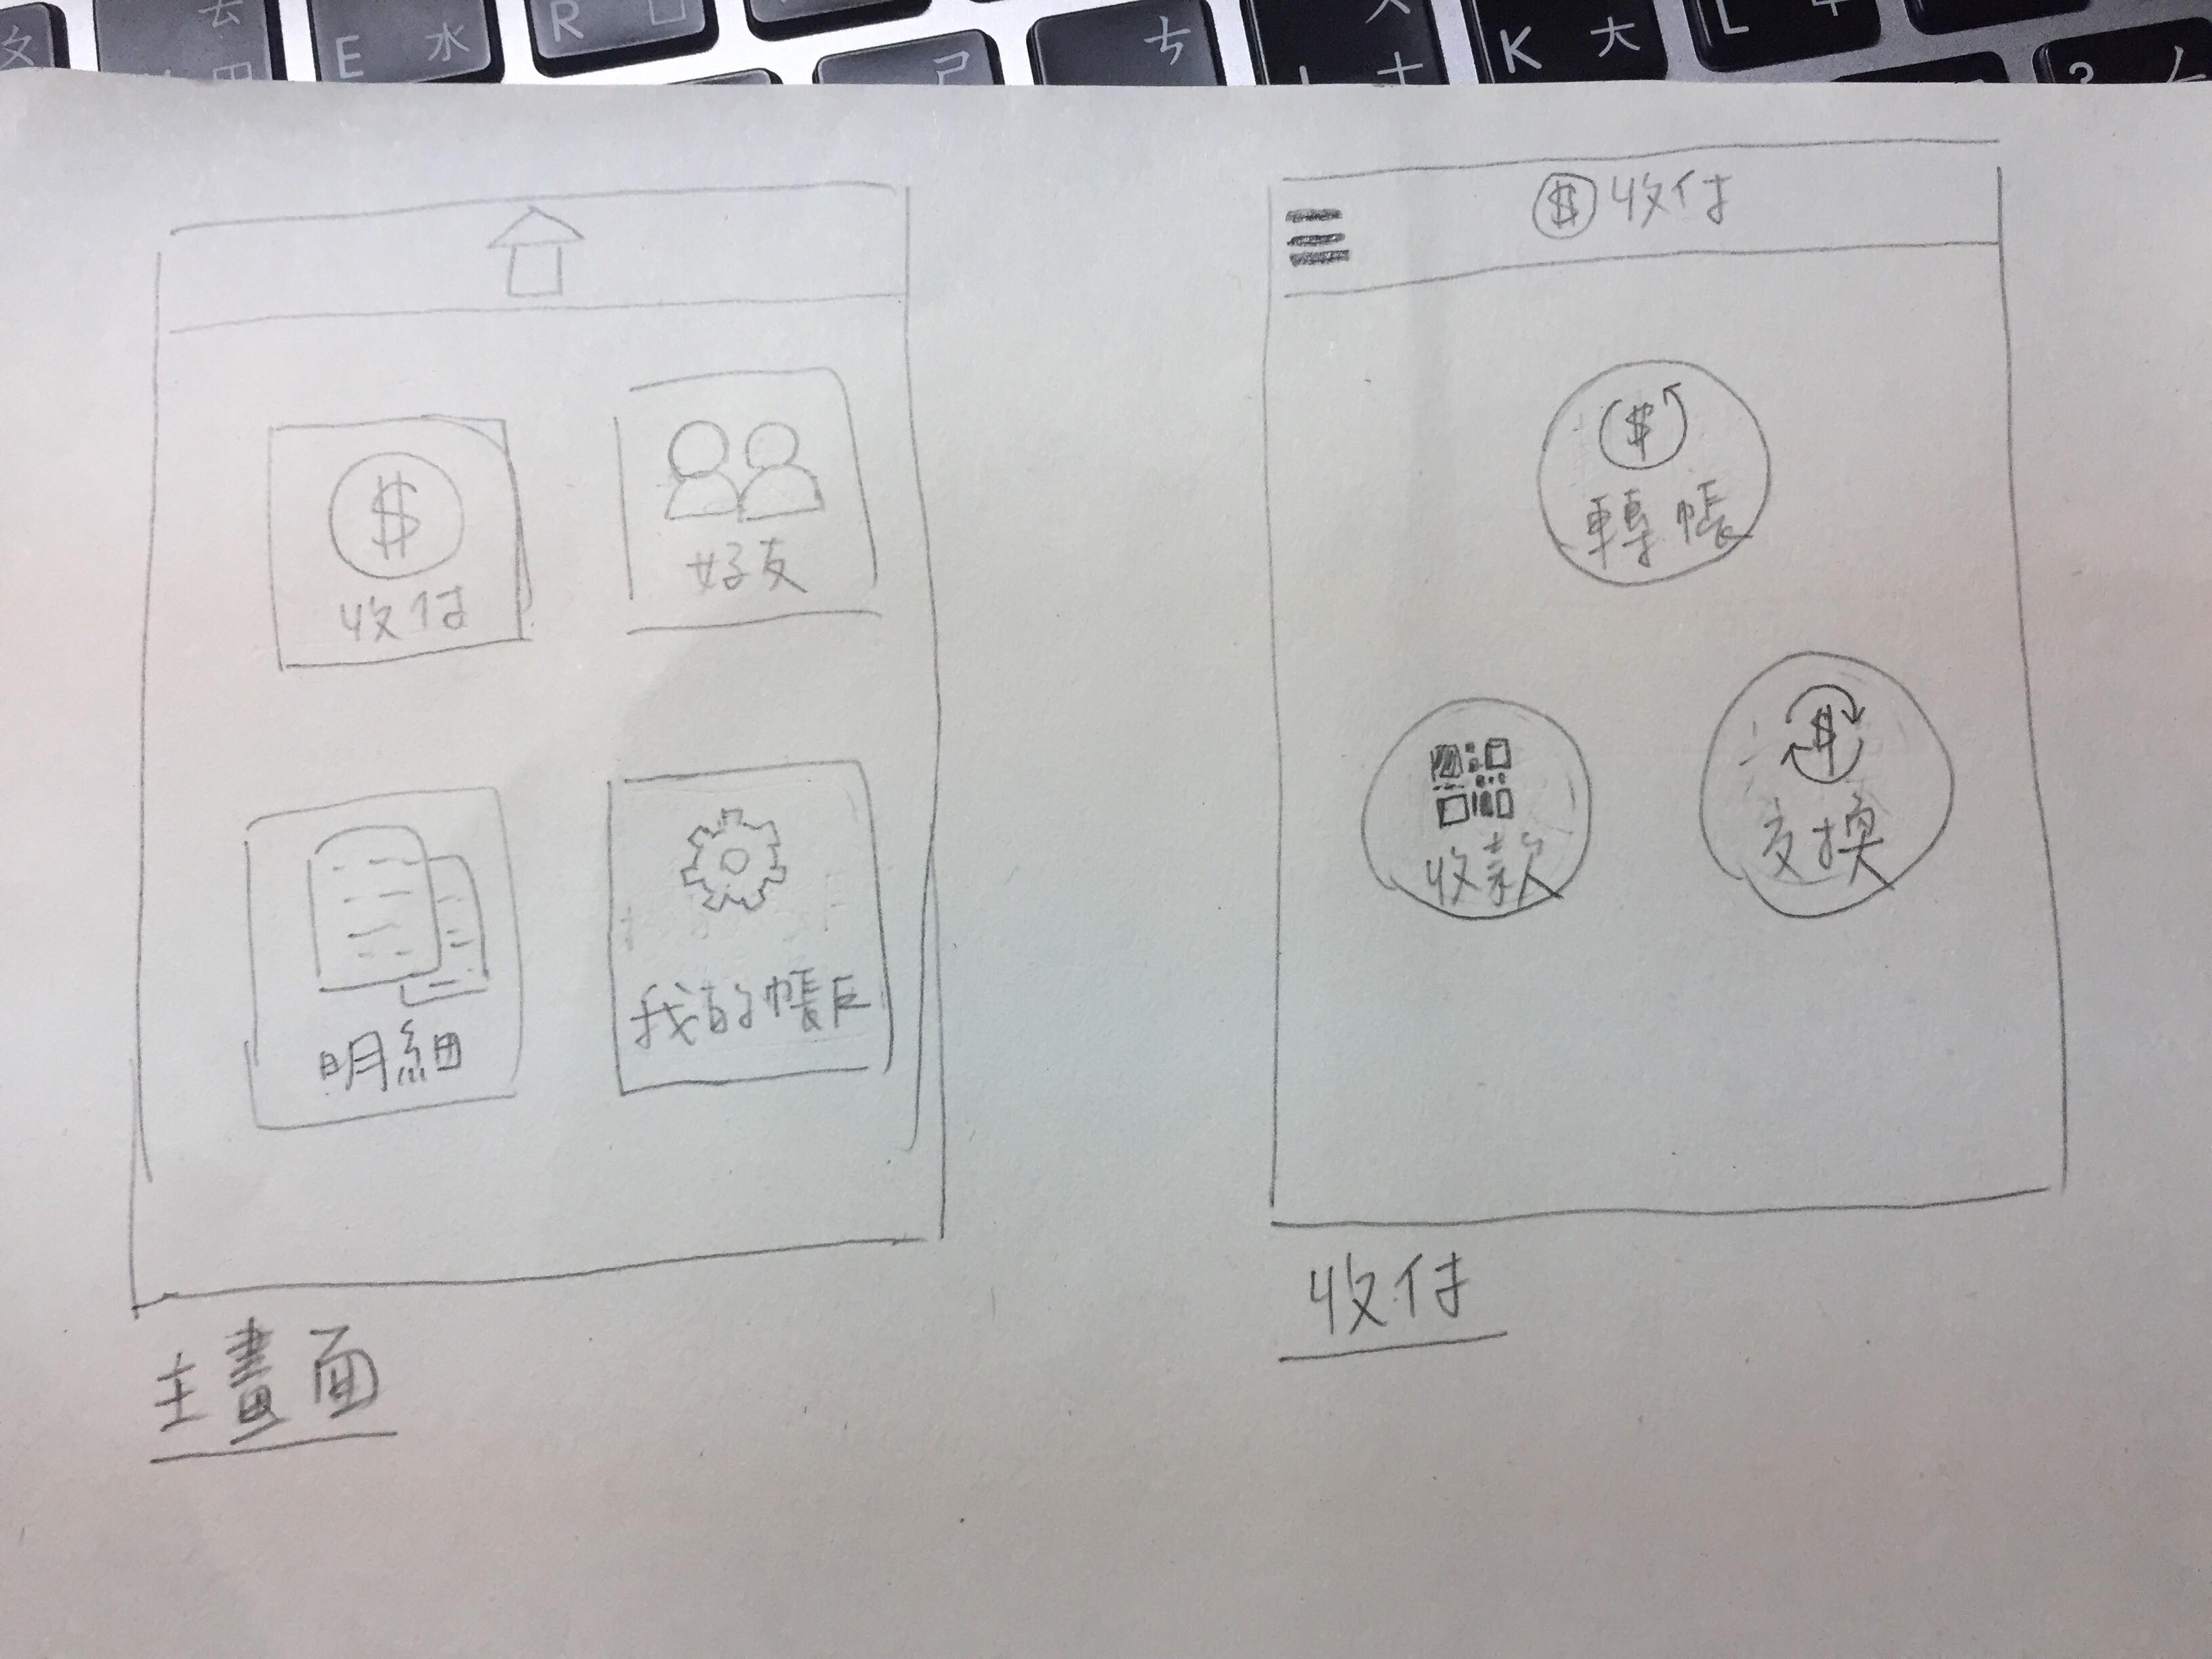 ㄆ
ㄊ
E 水
R 口
ㄕ
ㄘ
K 大
L 中
$
收付
好友
明細
我的帳戶
主畫面
$ 收付
$
轉帳
收款
$
交換
收付